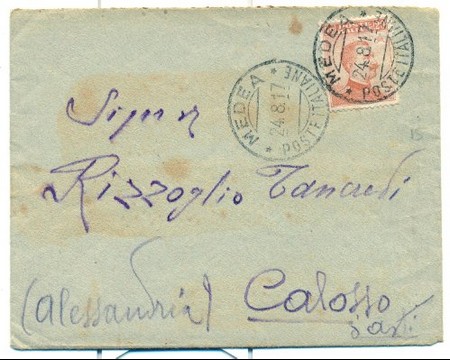 MEDEA
24.8.17
* POSTE ITALIANE *
MEDEA
24.8.17
* POSTE ITALIANE *
15
Signor
Rizzoglio Tancredi
(Alessandria) Calosso